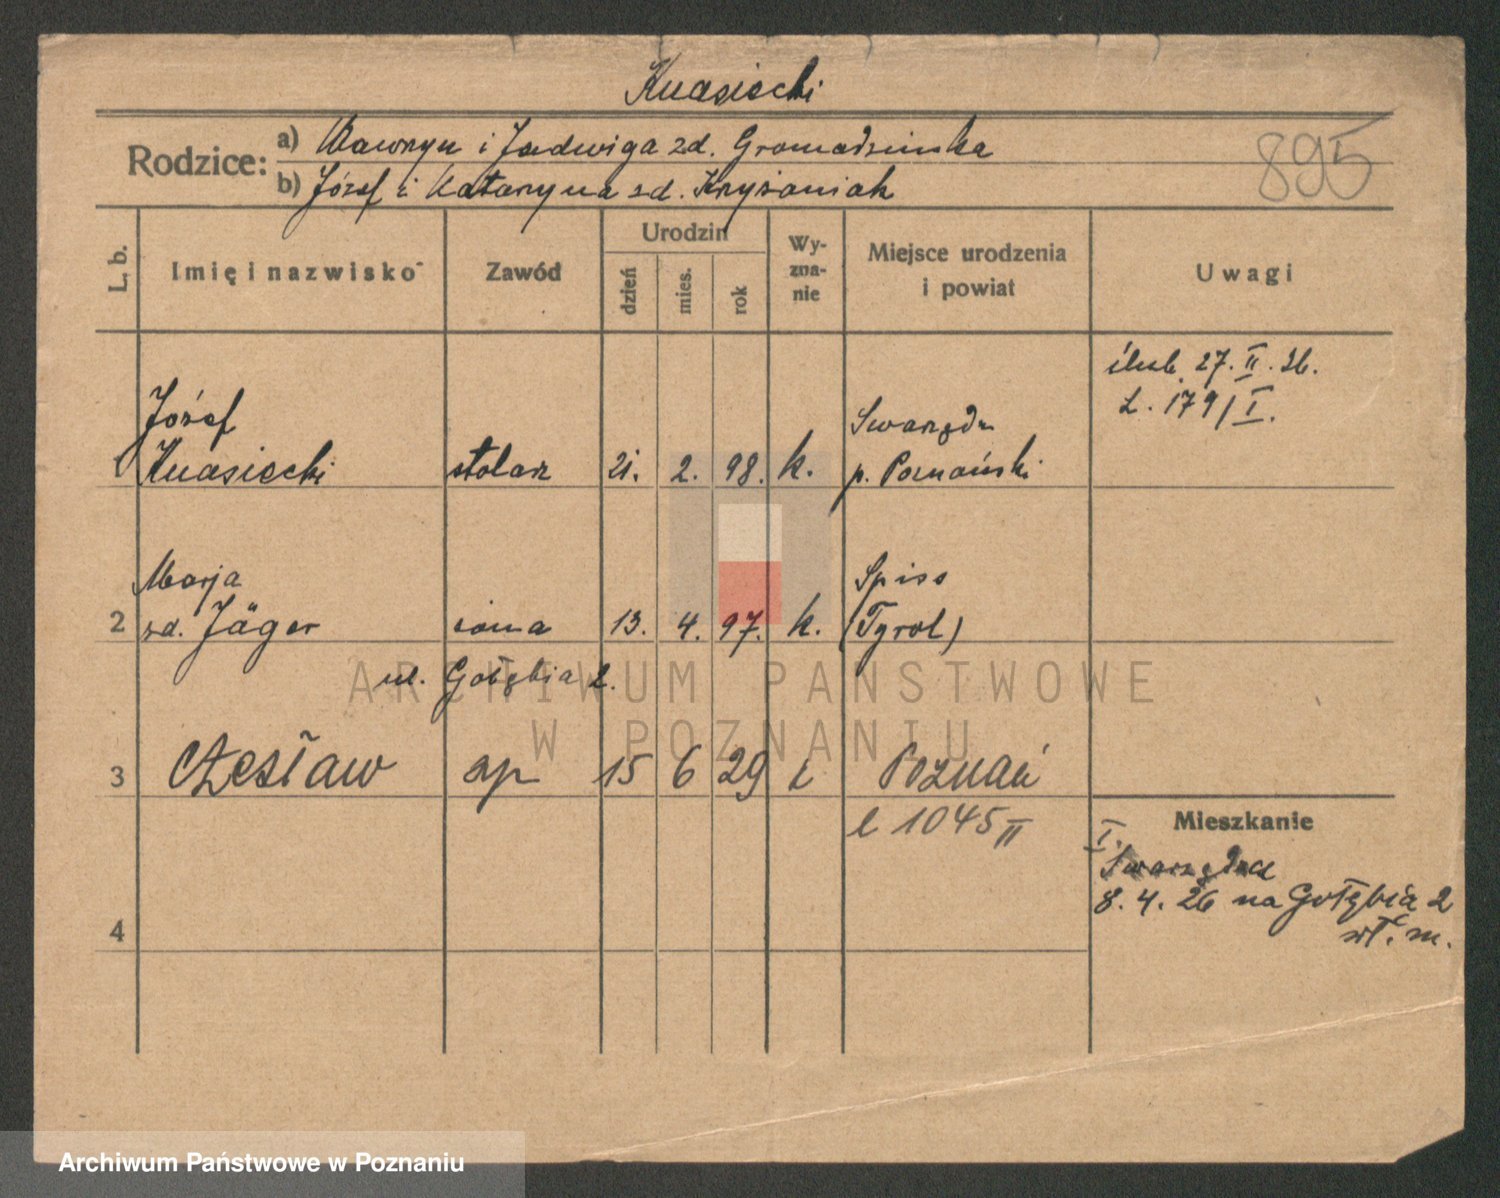 Kwasiecki
Rodzice:
a) Wawrzyn i Jadwiga zd. Gromadzinska
b) Józef i Katarzyna zd. Krzyżaniak
895
L. b.
Imię i nazwisko
Zawód
Urodzin
dzień
mies.
rok
Wy-
zna-
nie
Miejsce urodzenia
i powiat
Uwagi
ślub. 27. II. 26.
L. 179/I.
1 Józef
Kwasiecki stolarz 21. 2. 98. k. Swarzędz
p. Poznański
2 Marja
zd. Jäger żona 13. 4. 97. k. Spiss
(Tyrol)
ul. Gołębia 2.
3 Czesław syn 15 6 29 k Poznań
l 1045 II
4
Mieszkanie
I.
Swarzędza
8. 4. 26 na Gołębia 2
wł. m.
ARCHIWUM PAŃSTWOWE
W POZNANIU
Archiwum Państwowe w Poznaniu